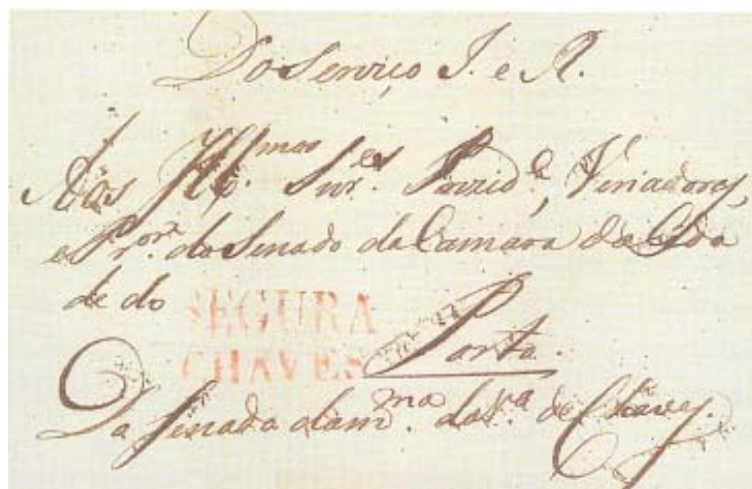 Do Serviço I. e R.
Aos Ill.mos Snr.es Prezid.e, Veriadores,
e Pr.or do Senado da Camara da Cida
de do
SEGURA
CHAVES
Porto.
Do Senado da V.a de Chaves.